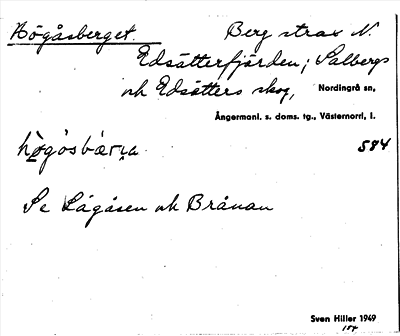 Högåsberget. Berg strax N.
Edsätterfjärden; Salbergs
och Edsätters skog, Nordingrå sn,
Ångermanl. s. doms. tg., Västernorrl. l.
hø̀gósbærɩa 584
Se Lågåsen och Brånan
Sven Hiller 1949